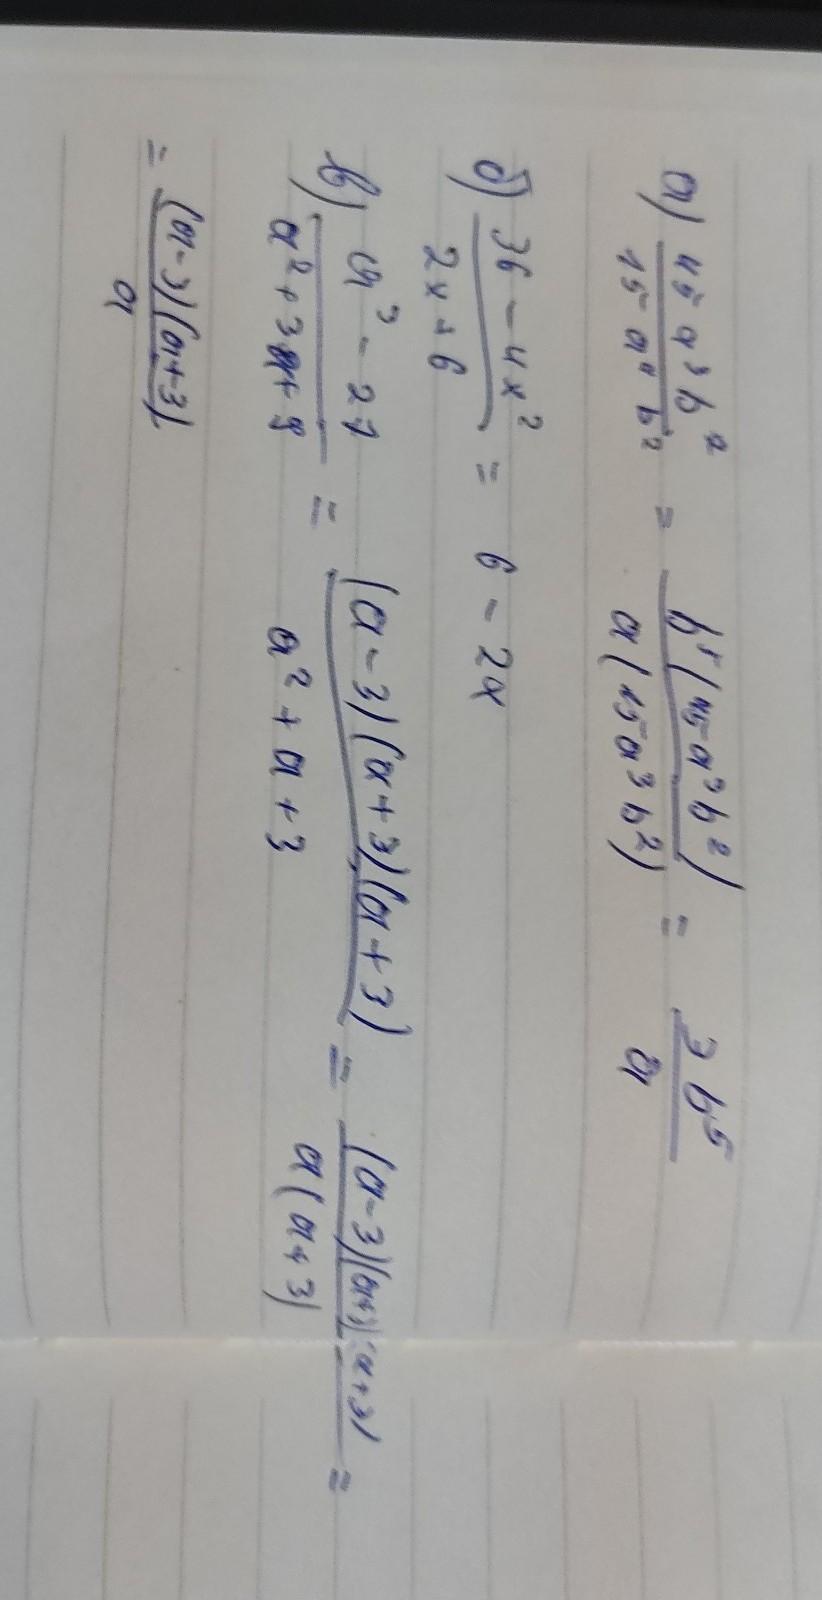 а) 45 a³ b⁷ / 15 a⁴ b² = b⁵(45 a³ b²) / a(15 a³ b²) = 3 b⁵ / a
б) 36 - 4x² / 2x + 6 = 6 - 2x
в) a³ - 27 / a² + 3a + 9 = (a - 3)(a + 3)(a + 3) / a² + a + 3 = (a - 3)(a + 3)(a + 3) / a(a + 3) =
= (a - 3)(a + 3) / a